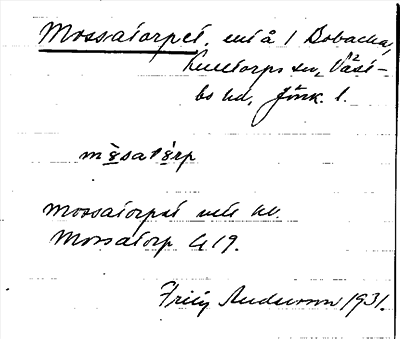 Mossatorpet, utå 1 Bobacka,
Kulltorps sn, Väst-
bo hd, Jönk. l.
mɷ̀satɷ̀rp
Mossatorpet utt kl.
Mossatorp G 19.
Andersson 1931.